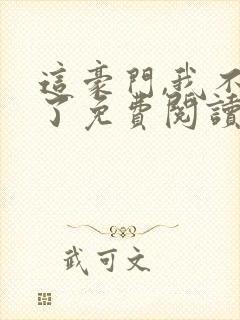 這豪門,我不
了免費閱讀
武可文